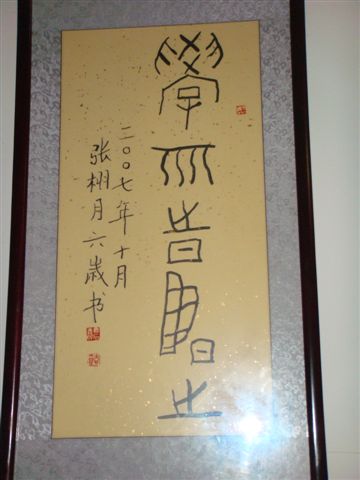 學而時習之
二〇〇七年十月
张栩月六歲书